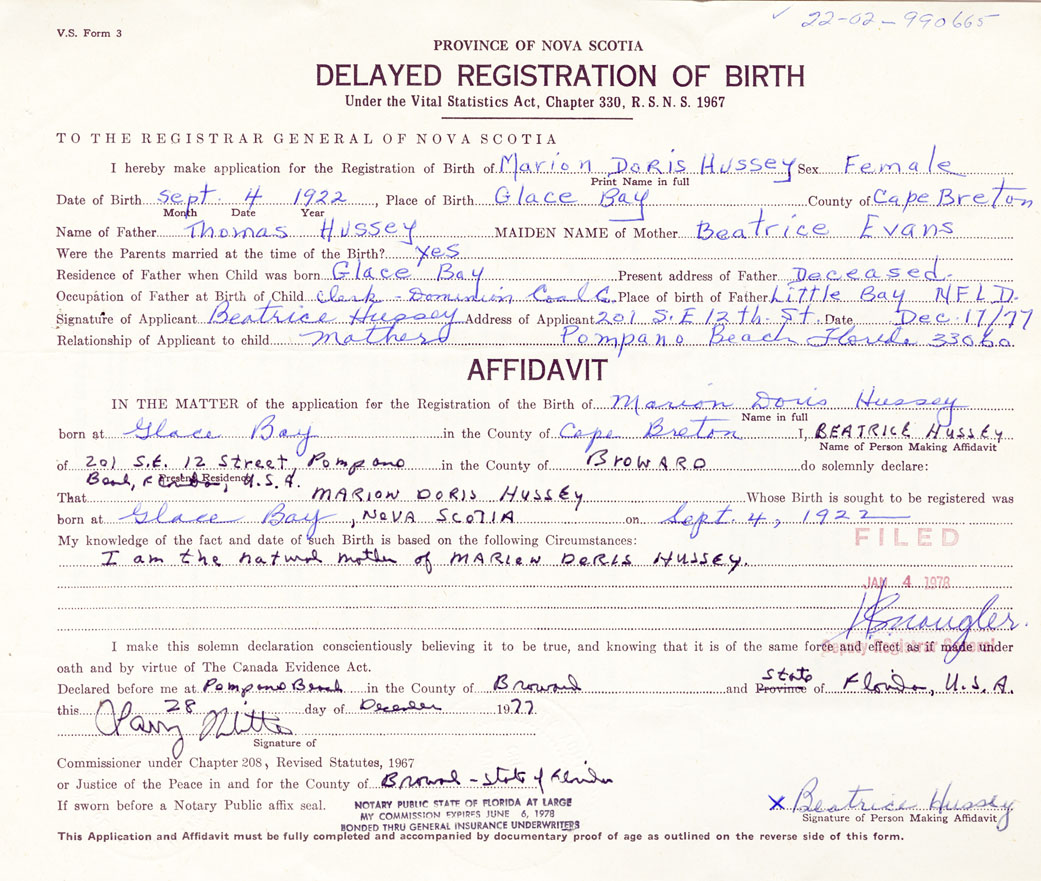 ✓ 22-02-990665
V.S. Form 3
PROVINCE OF NOVA SCOTIA
DELAYED REGISTRATION OF BIRTH
Under the Vital Statistics Act, Chapter 330, R.S.N.S. 1967
TO THE REGISTRAR GENERAL OF NOVA SCOTIA
I hereby make application for the Registration of Birth of Marion Doris Hussey Sex Female
Print Name in full
Date of Birth Sept. 4 1922, Place of Birth Glace Bay County of Cape Breton
Month Date Year
Name of Father Thomas Hussey MAIDEN NAME of Mother Beatrice Evans
Were the Parents married at the time of the Birth? yes
Residence of Father when Child was born Glace Bay Present address of Father Deceased.
Occupation of Father at Birth of Child Clerk - Dominion Coal C. Place of birth of Father Little Bay NFLD.
Signature of Applicant Beatrice Hussey Address of Applicant 201 S.E 12th. St. Date Dec. 17/77
Relationship of Applicant to child Mother Pompano Beach Florida 33060
AFFIDAVIT
IN THE MATTER of the application for the Registration of the Birth of Marion Doris Hussey
Name in full
born at Glace Bay in the County of Cape Breton I, BEATRICE HUSSEY
Name of Person Making Affidavit
of 201 S.E. 12 Street, Pompano in the County of BROWARD do solemnly declare:
Present Residence
Beach, Florida, U.S.A.
That MARION DORIS HUSSEY Whose Birth is sought to be registered was
born at Glace Bay, NOVA SCOTIA on Sept. 4, 1922
My knowledge of the fact and date of such Birth is based on the following Circumstances:
FILED
I am the natural mother of MARION DORIS HUSSEY.
JAN 4 1978
Deputy Registrar General
I make this solemn declaration conscientiously believing it to be true, and knowing that it is of the same force and effect as if made under
oath and by virtue of The Canada Evidence Act.
Declared before me at Pompano Beach in the County of Broward and State Province of Florida, U.S.A.
this 28 day of December 1977
Signature of
Commissioner under Chapter 208, Revised Statutes, 1967
or Justice of the Peace in and for the County of Broward - State of Florida
If sworn before a Notary Public affix seal.
NOTARY PUBLIC STATE OF FLORIDA AT LARGE
MY COMMISSION EXPIRES JUNE 6, 1978
BONDED THRU GENERAL INSURANCE UNDERWRITERS
X Beatrice Hussey
Signature of Person Making Affidavit
This Application and Affidavit must be fully completed and accompanied by documentary proof of age as outlined on the reverse side of this form.